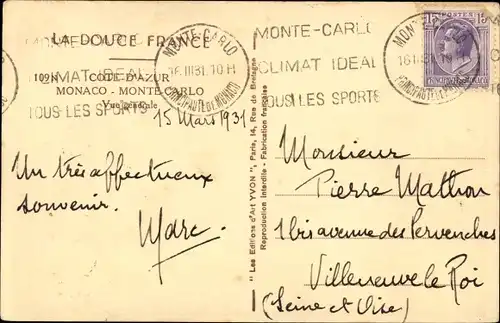 LA DOUCE FRANCE
102N CÔTE D'AZUR
MONACO - MONTE-CARLO
Vue générale
MONTE-CARLO
16 III 31. 10 H
PRINCIPAUTE DE MONACO
MONTE-CARLO
CLIMAT IDEAL
TOUS LES SPORTS
MONTE-CARLO
PRINCIPAUTE DE MONACO
15 POSTES 15
15 Mars 1931
Un très affectueux
souvenir.
Marc.
"Les Editions d'Art YVON", Paris, 14, Rue de Bretagne
Reproduction interdite - Fabrication française
Monsieur
Pierre Mathon
1 bis avenue des Pervenches
Villeneuve le Roi
(Seine et Oise)